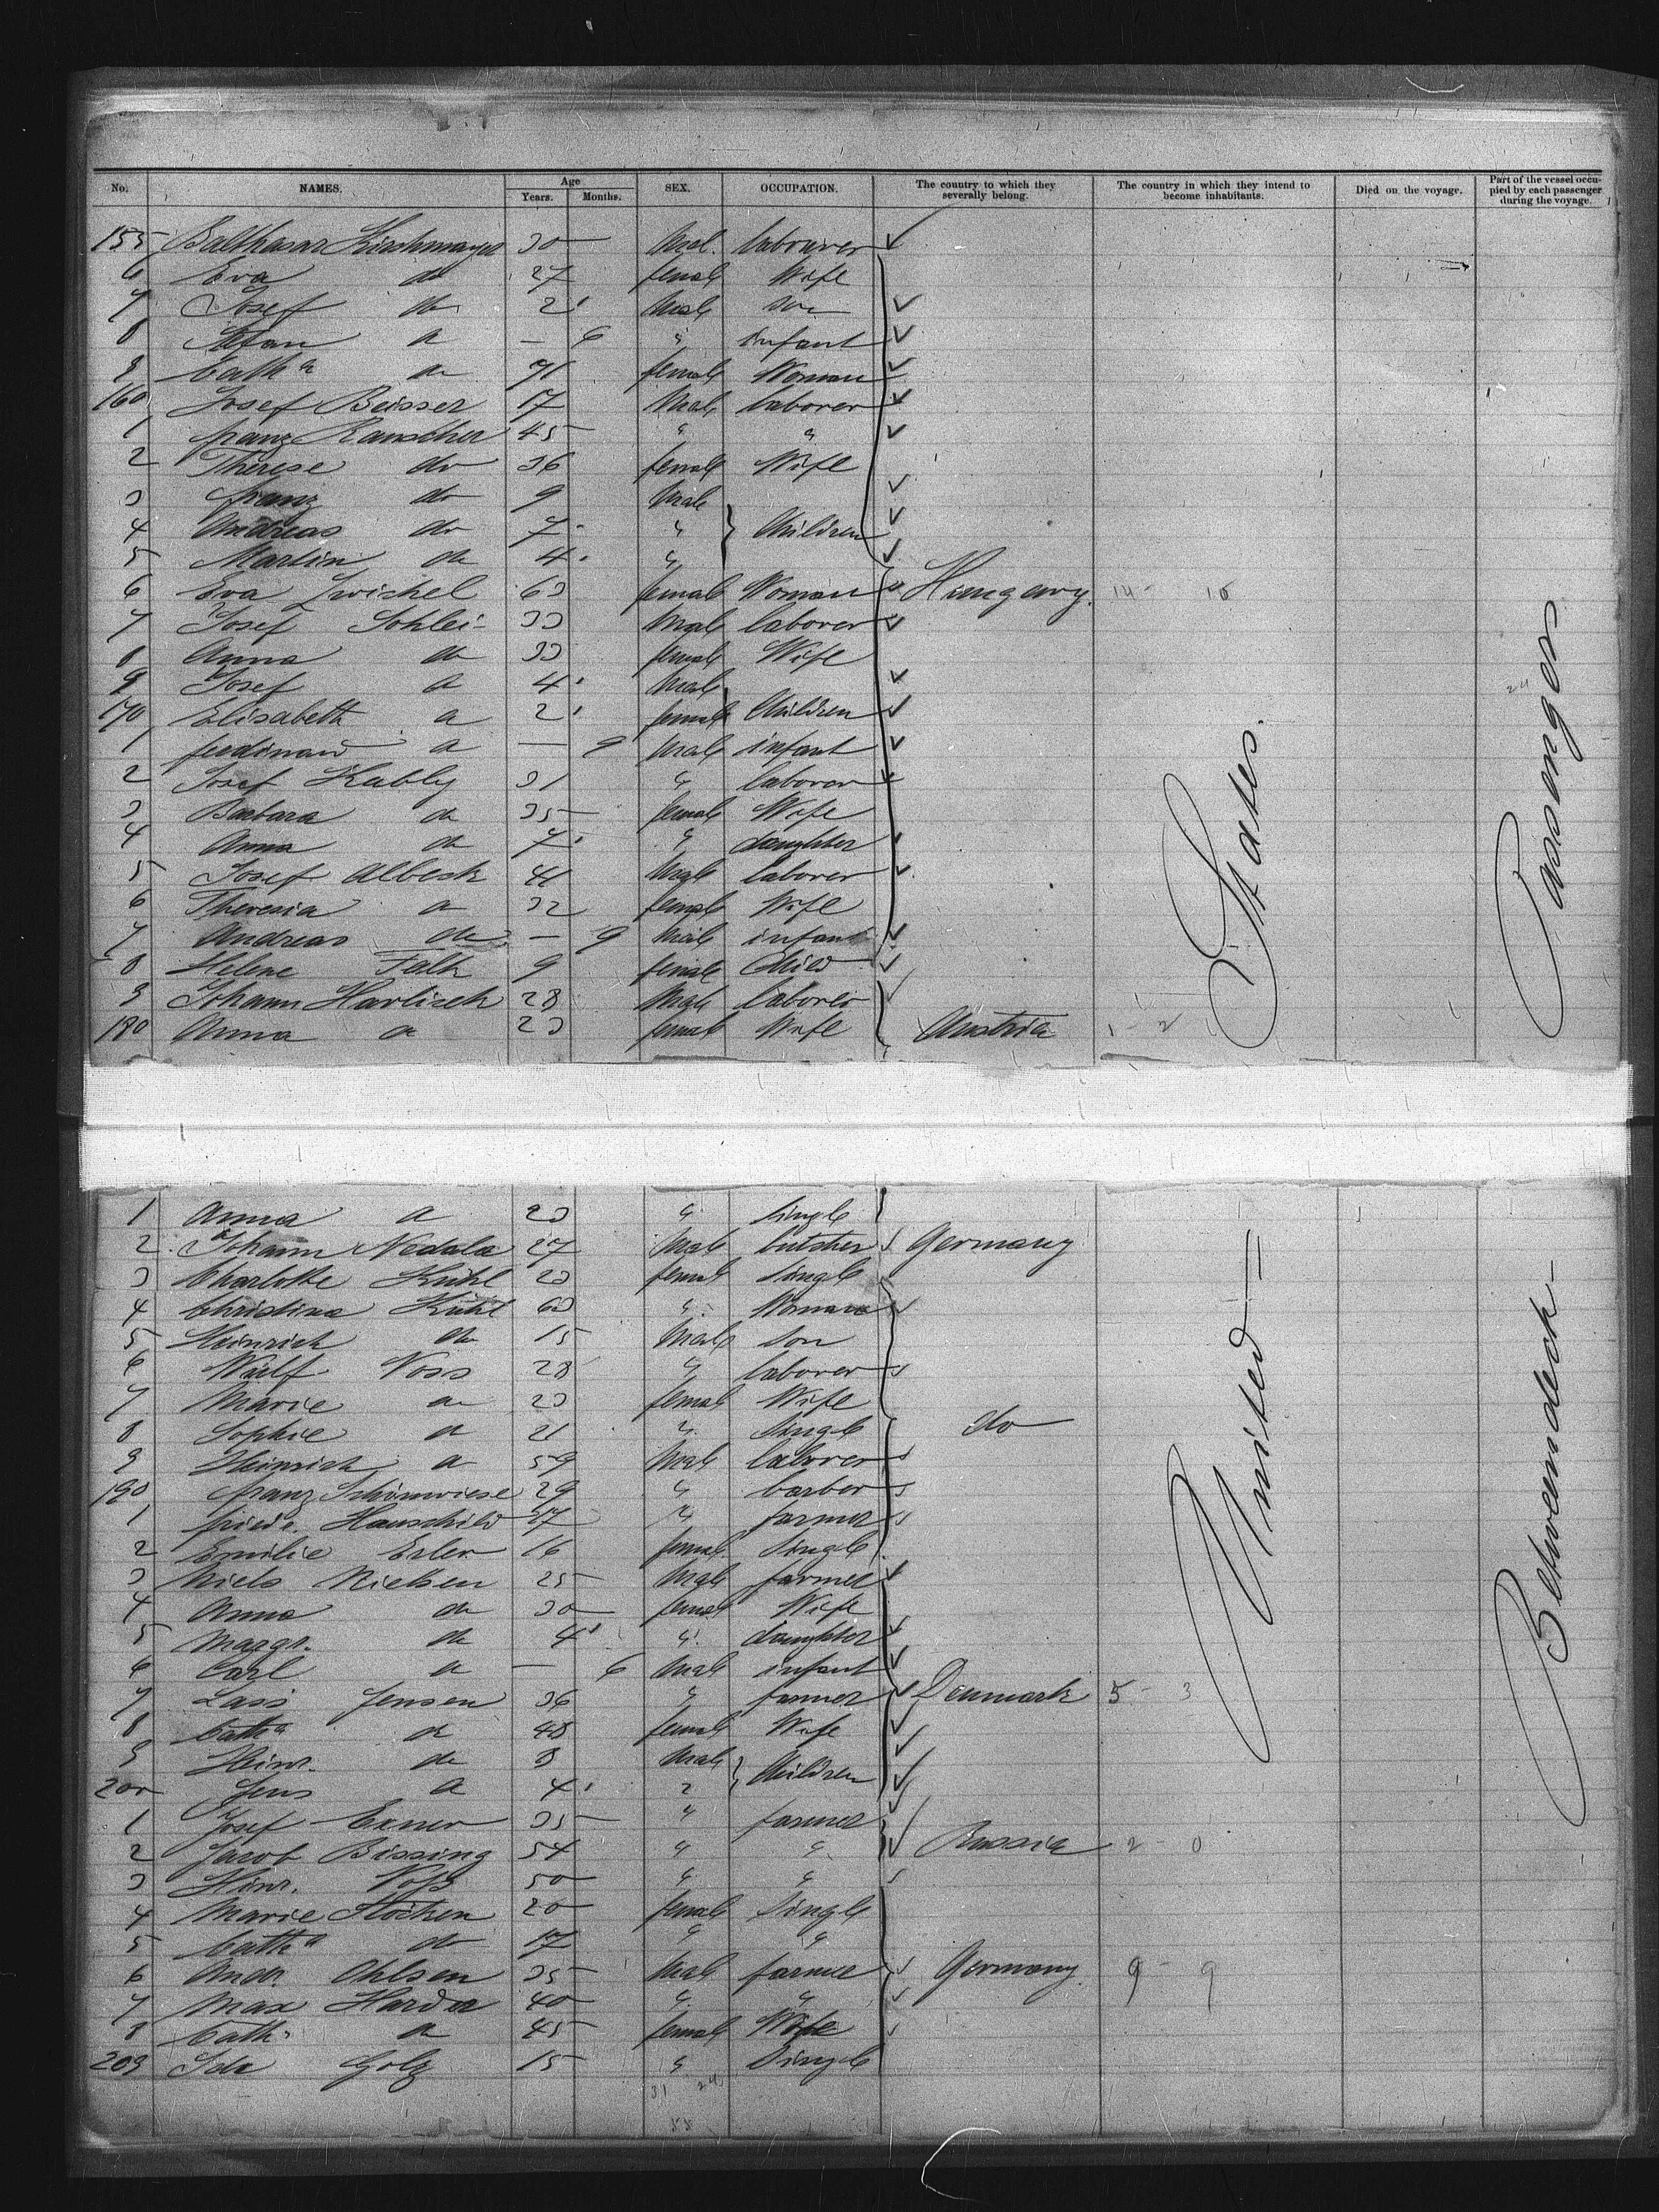 No. NAMES. Age Years. Months. SEX. OCCUPATION. The country to which they severally belong. The country in which they intend to become inhabitants. Died on the voyage. Part of the vessel occupied by each passenger during the voyage.
155 Balthasar Kirchmayer 30 Mal. labourer
6 Eva do 27 female Wife
7 Josef do 2 Male son
8 Stefan do — 6 " infant
9 Cath a do 71 female Woman
160 Josef Beisser 17 Male laborer
1 Franz Rauscher 45 " "
2 Therese do 36 female Wife
3 Franz do 9 Male
4 Andreas do 7 " Children
5 Martin do 4 "
6 Eva Zwichel 63 female Woman Hungary. 14 - 10
7 Josef Schlei- 33 Male laborer
8 Anna do 33 female Wife
9 Josef do 4 Male
170 Elisabeth do 2 female Children
1 Ferdinand do — 9 Male infant
2 Josef Kubly 31 " laborer
3 Barbara do 35 female Wife
4 Anna do 7 " daughter
5 Josef Albeck 41 Male laborer
6 Theresia do 32 female Wife
7 Andreas do — 9 Male infant
8 Helene Falk 9 female Child
9 Johann Havlisch 28 Male laborer
180 Anna do 23 female Wife Austria 1 - 2
States.
Passengers
1 Anna do 23 " Single
2 Johann Nedala 27 Male butcher Germany
3 Charlotte Kühl 23 female Single
4 Christina Kühl 63 " Woman
5 Heinrich do 15 Male Son
6 Wulf Voss 28 " laborer
7 Marie do 23 female Wife
8 Sophie do 21 " Single do
9 Heinrich do 59 Male laborer
190 Franz Schönwiese 29 " barber
1 Friedr. Hauschild 27 " farmer
2 Emilie Erler 16 female Single
3 Niels Nielsen 25 Male farmer
4 Anna do 30 female Wife
5 Margr. do 4 " daughter
6 Carl do — 6 Male infant
7 Lass Jensen 36 " farmer Denmark 5 - 3
8 Cath a do 48 female Wife
9 Heinr. do 8 Male
200 Jens do 4 " Children
1 Josef Exner 35 " farmer
2 Jacob Bissing 54 " " Russia 2 - 0
3 Hinr. Voss 50 " "
4 Marie Höchen 20 female Single
5 Cath a do 17 " "
6 Andr. Ohlsen 35 Male farmer Germany. 9 - 9
7 Max Harder 40 " "
8 Cath. do 45 female Wife
209 Ida Golz 15 " Single
United
Betweendeck
31 24